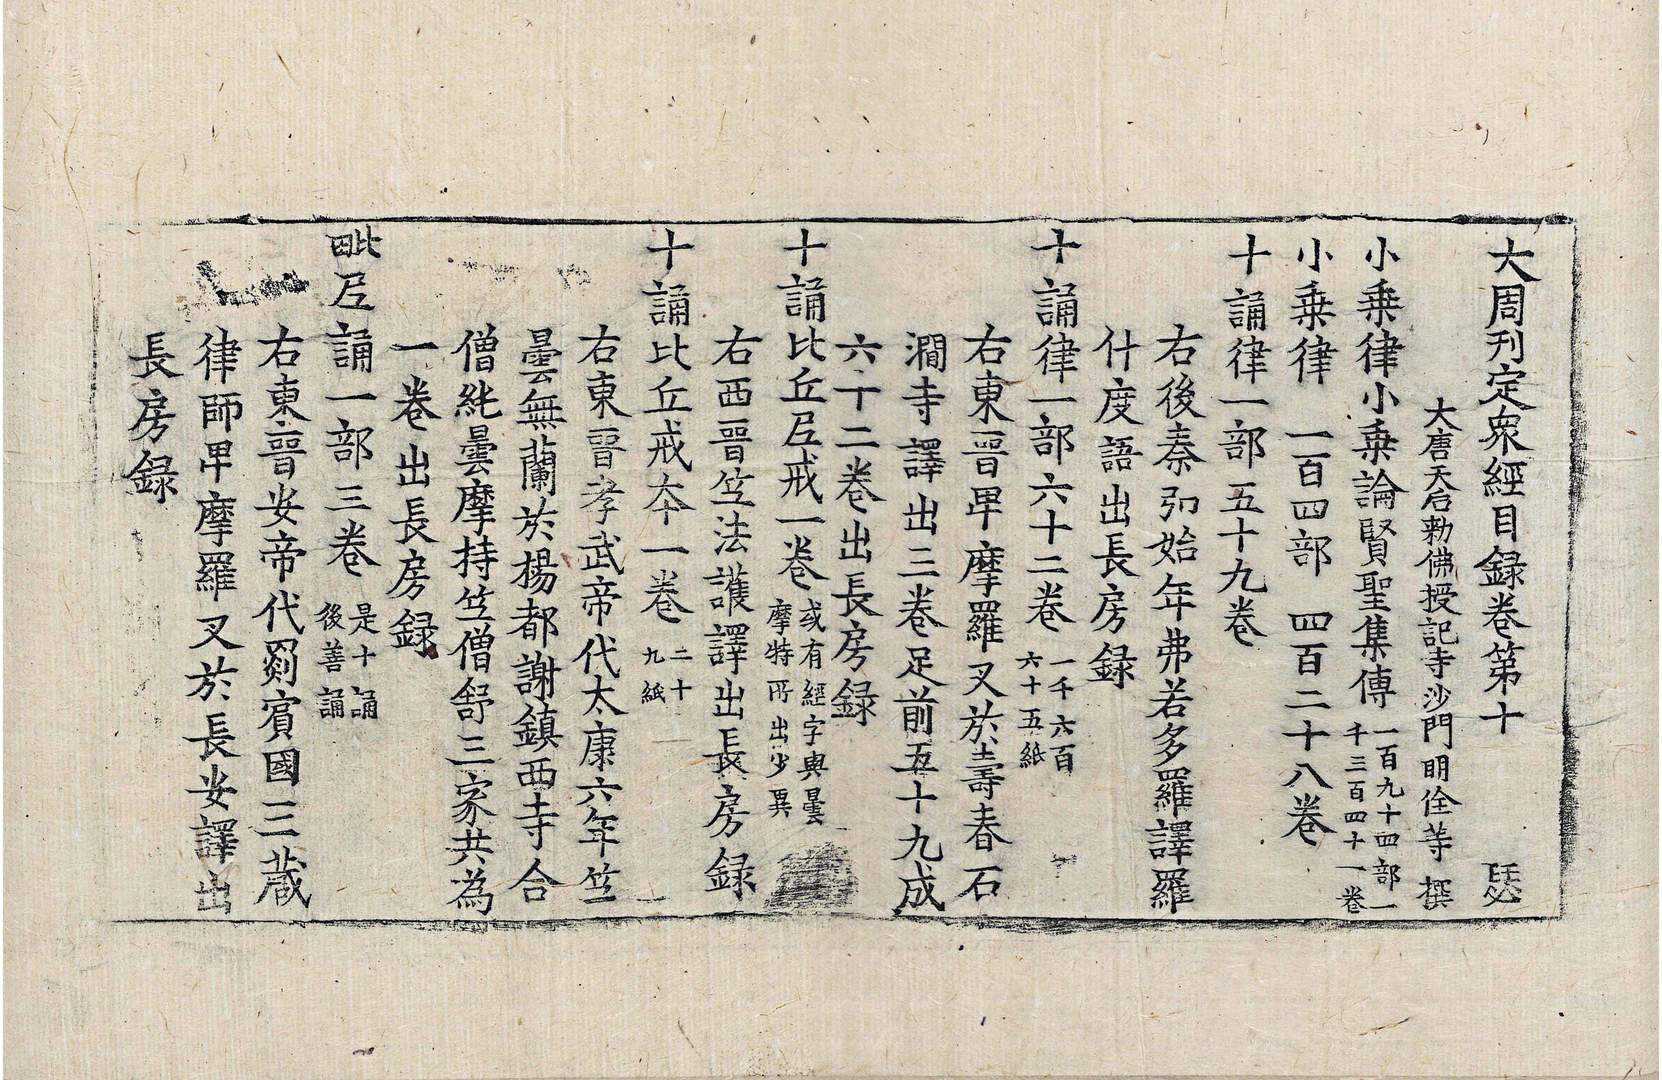 大周刊定衆經目錄卷第十 瑟
大唐天后勅佛授記寺沙門明佺等 撰
小乗律小乗論賢聖集傳 一百九十四部一
千三百四十一卷
小乗律 一百四部 四百二十八卷
十誦律一部五十九卷
右後秦弘始年弗若多羅譯羅
什度語出長房録
十誦律一部六十二卷 一千六百
六十五紙
右東晉卑摩羅叉於壽春石
澗寺譯出三卷足前五十九成
六十二卷出長房録
十誦比丘尼戒一卷 或有經字與曇
摩特所出少異
右西晉竺法護譯出長房録
十誦比丘戒夲一卷 二十
九紙
右東晉孝武帝代太康六年竺
曇無蘭於楊都謝鎮西寺合
僧純曇摩持竺僧舒三家共為
一卷出長房録
毗尼誦一部三卷 是十誦
後善誦
右東晉安帝代罽賓國三藏
律師卑摩羅叉於長安譯出
長房録